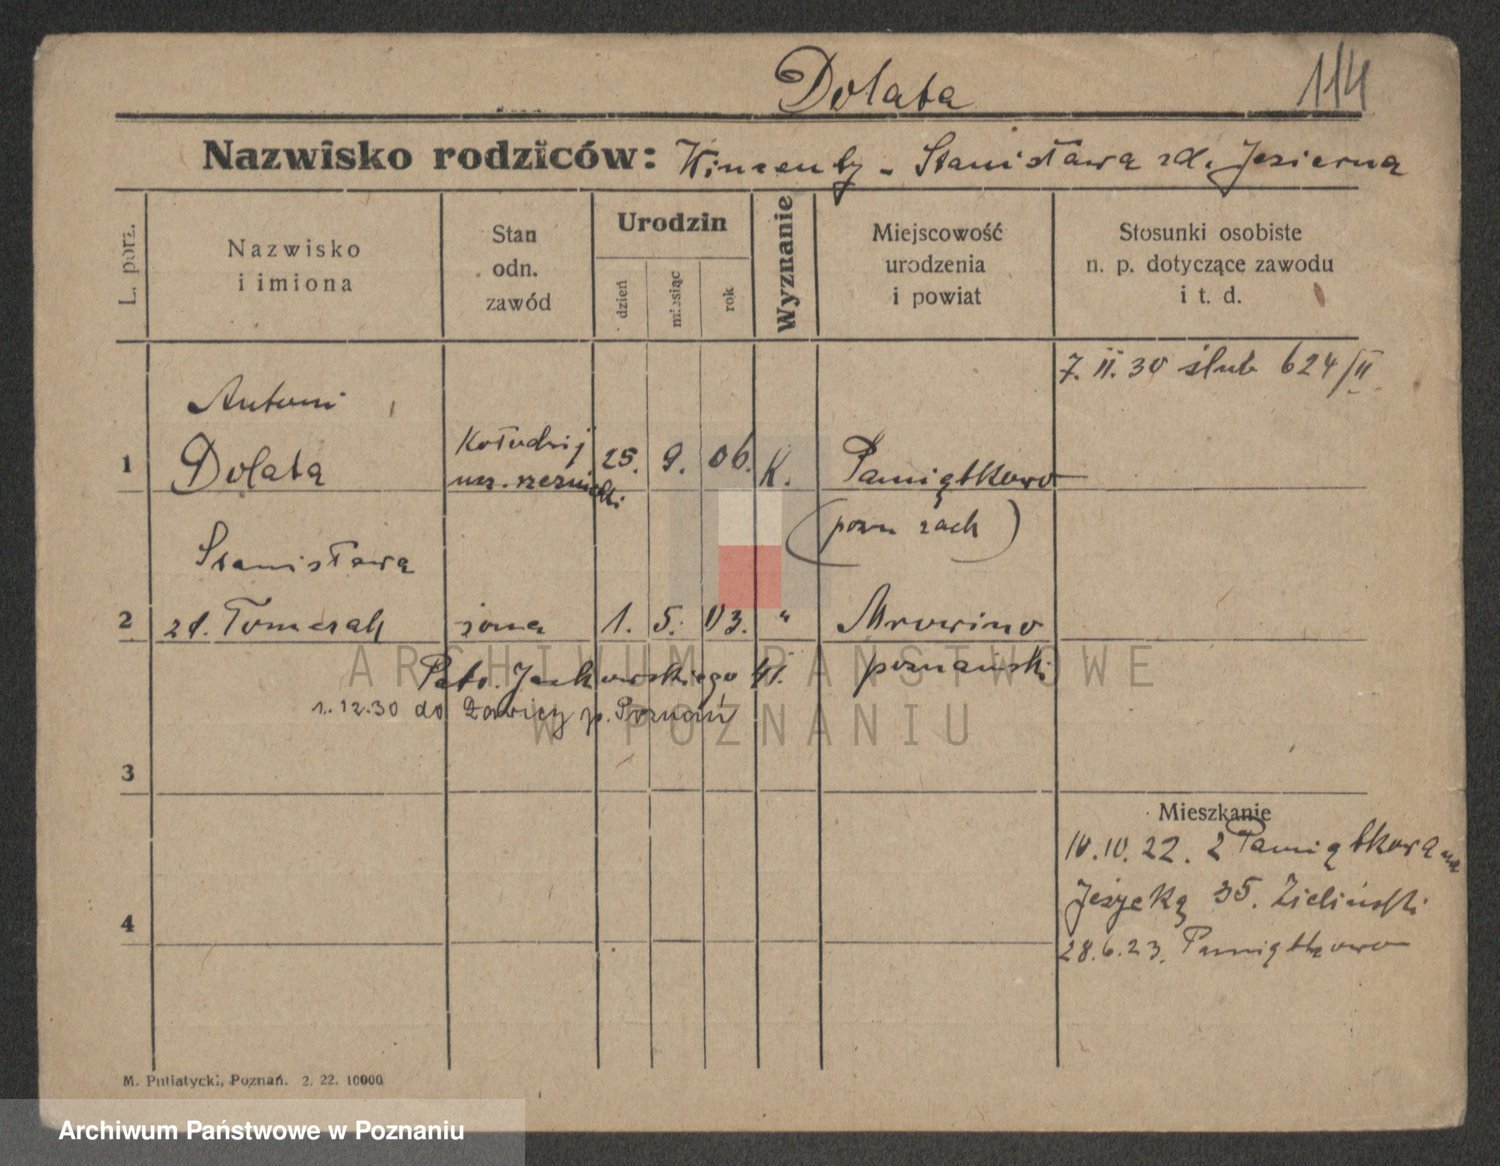 Dolata
114
Nazwisko rodziców: Wincenty - Stanisława zd. Jezierna
L. porz.
Nazwisko
i imiona
Stan
odn.
zawód
Urodzin
dzień
miesiąc
rok
Wyznanie
Miejscowość
urodzenia
i powiat
Stosunki osobiste
n. p. dotyczące zawodu
i t. d.
7. II. 30 ślub 624/II
1
Antoni
Dolata
Kołodziej
ucz. rzeźnicki
25. 9. 06. K.
Pamiątkowo
(pozn zach)
2
Stanisława
zd. Tomczak
żona
1. 5. 03. "
Mrowino
poznański
Jackowskiego 41.
1.12.30 do Ławicy p. Poznań
3
Mieszkanie
10.10.22. z Pamiątkowa na
Jeżycką 35. Zieliński
28.6.23. Pamiątkowo
4
M. Putiatycki, Poznań. 2. 22. 10000
ARCHIWUM PAŃSTWOWE
W POZNANIU
Archiwum Państwowe w Poznaniu